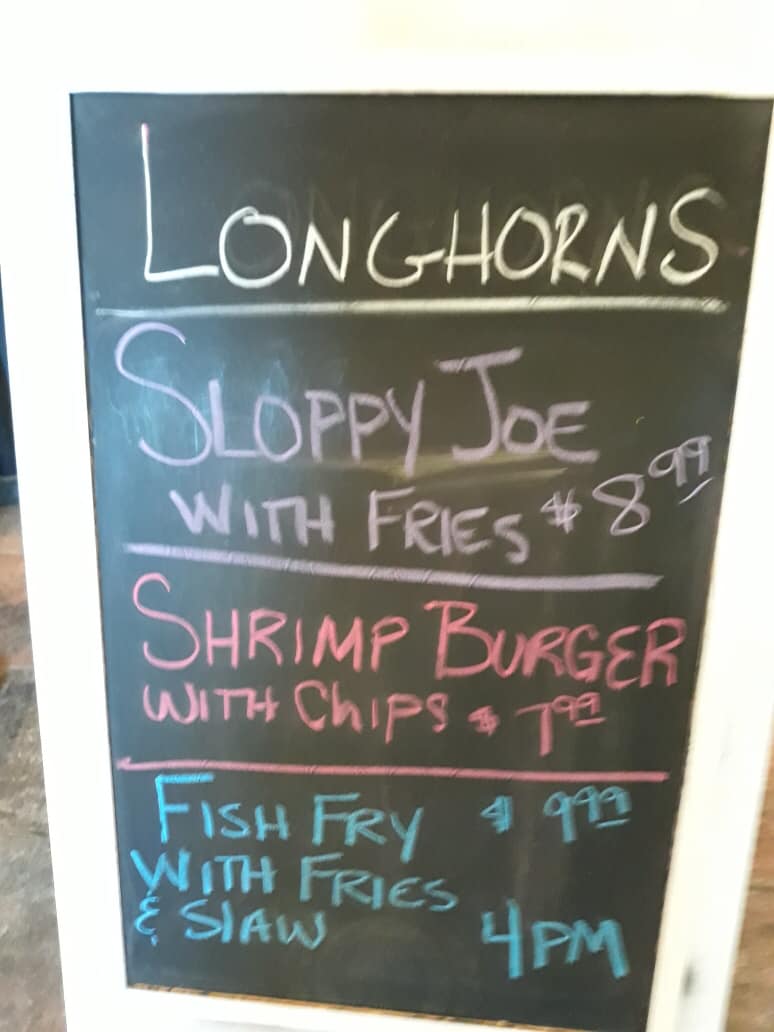 LONGHORNS
SLOPPY JOE
WITH FRIES $8.99
SHRIMP BURGER
WITH ChIPS $7.99
FISH FRY $9.99
WITH FRIES
& SlAW 4PM